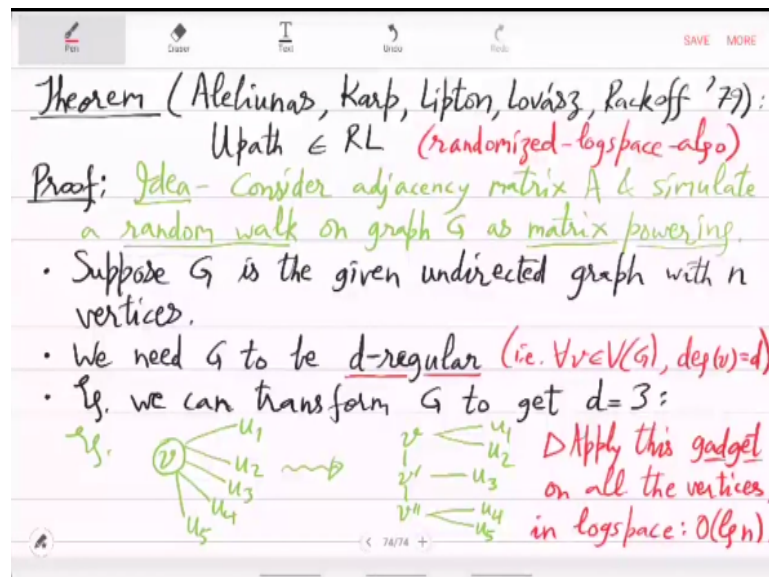 Pen Eraser Text Undo Redo SAVE MORE
Theorem (Aleliunas, Karp, Lipton, Lovász, Rackoff '79):
Upath ∈ RL (randomized-logspace-algo)
Proof: Idea - Consider adjacency matrix A & simulate
a random walk on graph G as matrix powering.
• Suppose G is the given undirected graph with n
vertices.
• We need G to be d-regular (i.e. ∀v∈V(G), deg(v)=d)
• Eg. we can transform G to get d=3:
Eg. v u1 u2 u3 u4 u5
v u1 u2
v' u3
v'' u4 u5
▷Apply this gadget
on all the vertices,
in logspace: O(lg n).
< 74/74 +